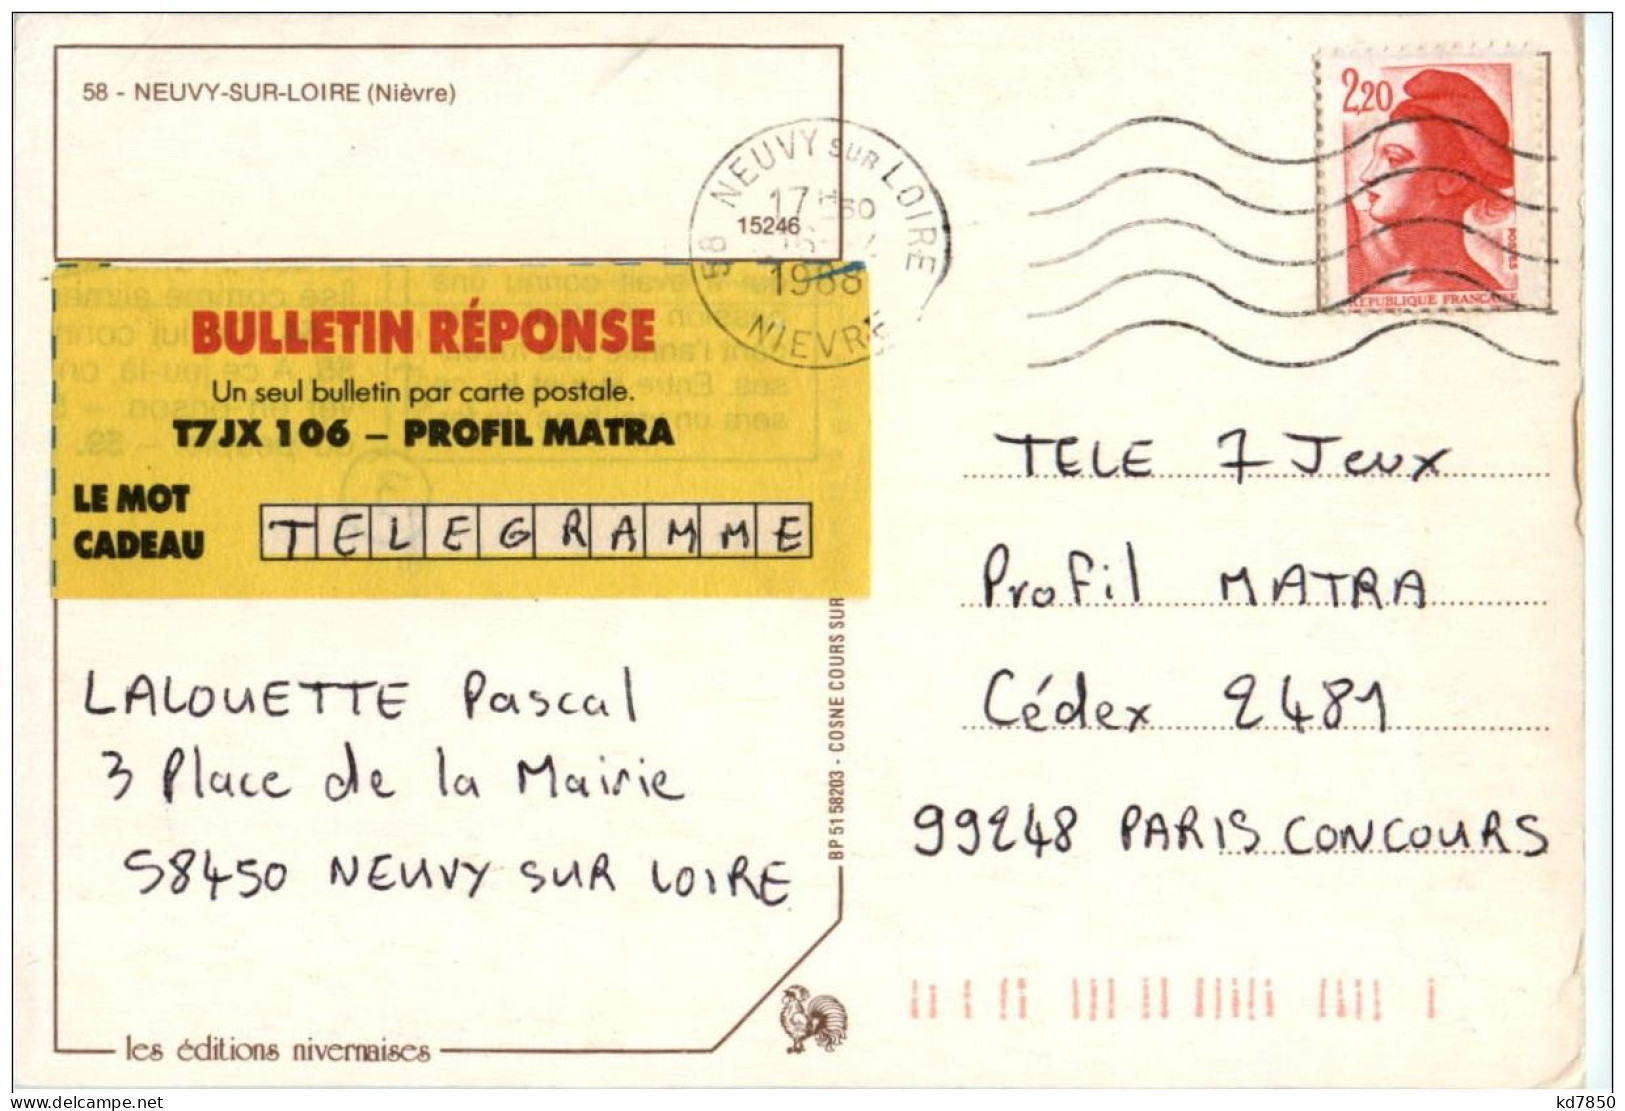 58 - NEUVY-SUR-LOIRE (Nièvre)
2,20
POSTES
REPUBLIQUE FRANCAISE
58 NEUVY SUR LOIRE
17 H
15246
1988
NIEVRE
BULLETIN RÉPONSE
Un seul bulletin par carte postale.
T7JX 106 – PROFIL MATRA
LE MOT
CADEAU
TELEGRAMME
LALOUETTE Pascal
3 Place de la Mairie
58450 NEUVY SUR LOIRE
TELE 7 Jeux
Profil MATRA
Cédex 2481
99248 PARIS CONCOURS
BP 51 58203 - COSNE COURS SUR
les éditions nivernaises
kd7850